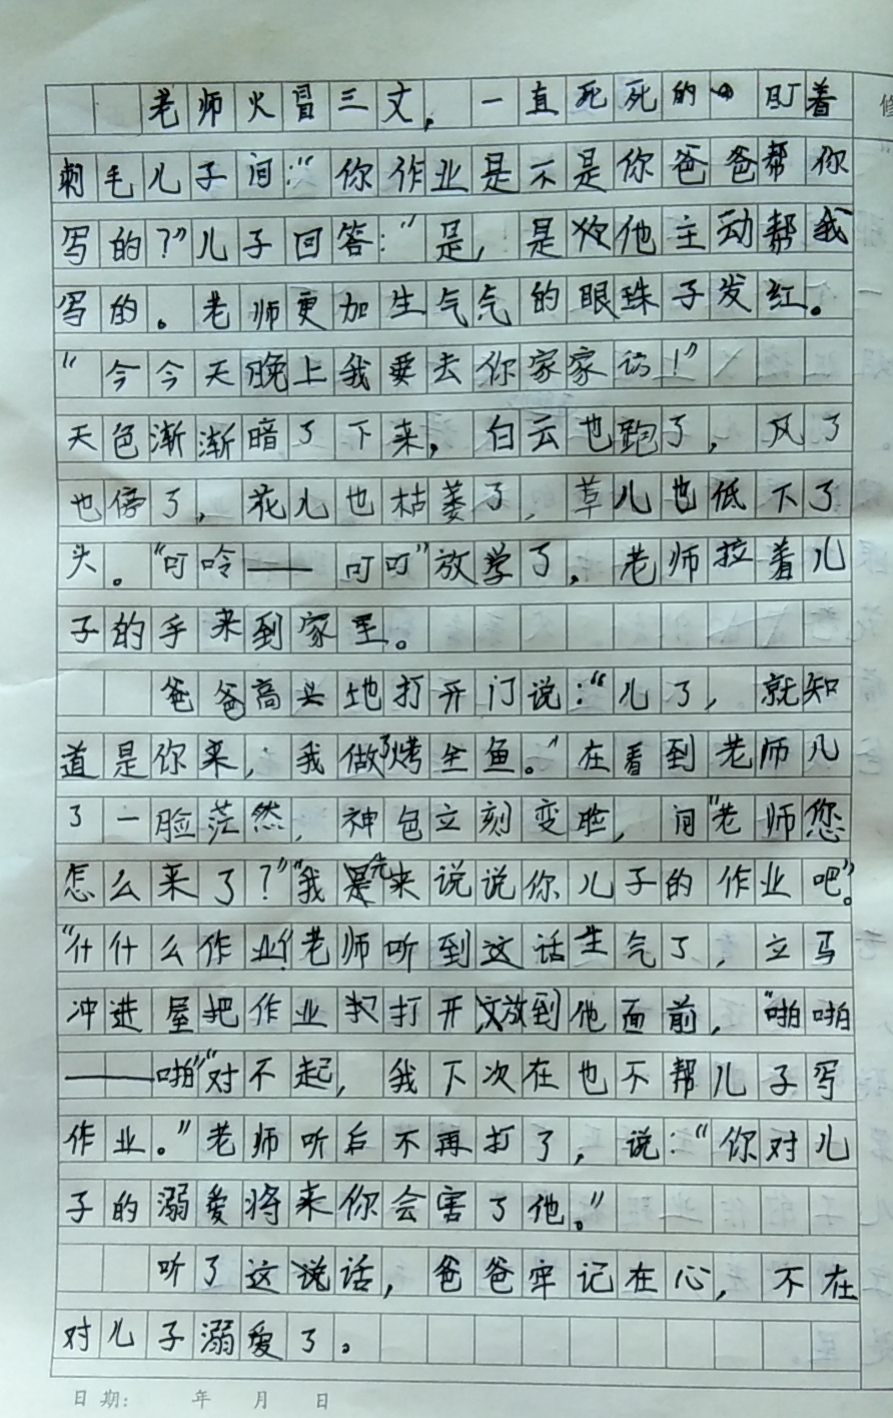 老师火冒三丈，一直死死的盯着
刺毛儿子间：“你作业是不是你爸爸帮你
写的？”儿子回答：“是，是他主动帮我
写的。老师更加生气气的眼珠子发红。
“今今天晚上我要去你家家访！”
天色渐渐暗了下来，白云也跑了，风了
也停了，花儿也枯萎了，草儿也低下了
头。“叮呤——叮叮”放学了，老师拉着儿
子的手来到家里。
爸爸高兴地打开门说：“儿了，就知
道是你来，我做了烤全鱼。”在看到老师儿
了一脸茫然，神色立刻变脸，间“老师您
怎么来了？”“我先来说说你儿子的作业吧”。
“什什么作业“老师听到这话生气了，立马
冲进屋把作业打开放到他面前，“啪啪
——啪”“对不起，我下次在也不帮儿子写
作业。”老师听后不再打了，说：“你对儿
子的溺爱将来你会害了他。”
听了这话，爸爸牢记在心，不在
对儿子溺爱了。
日期： 年 月 日
修